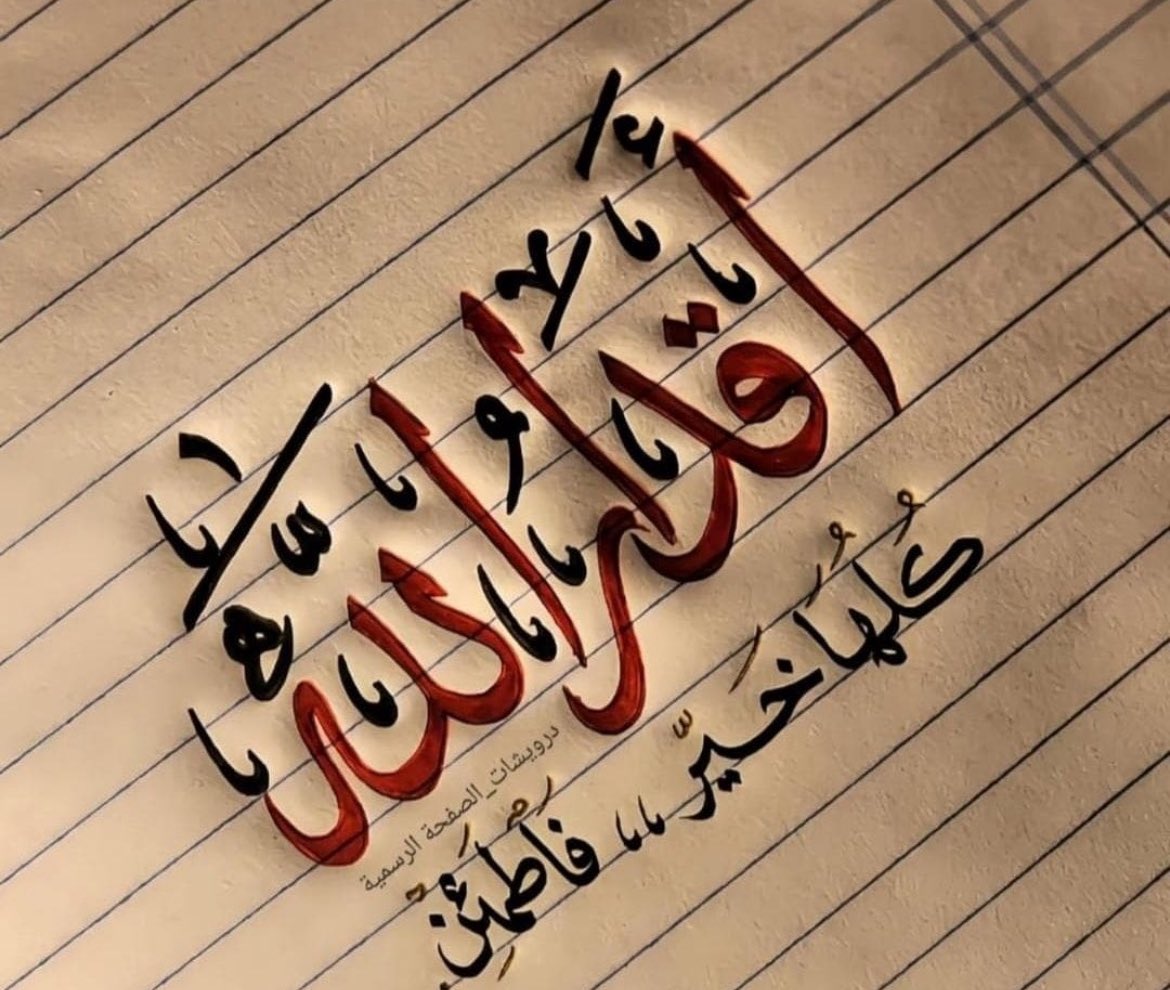 أقدار الله
كُلُها خَيّر ،، فاطمَئِن
درويشات_الصفحة الرسمية